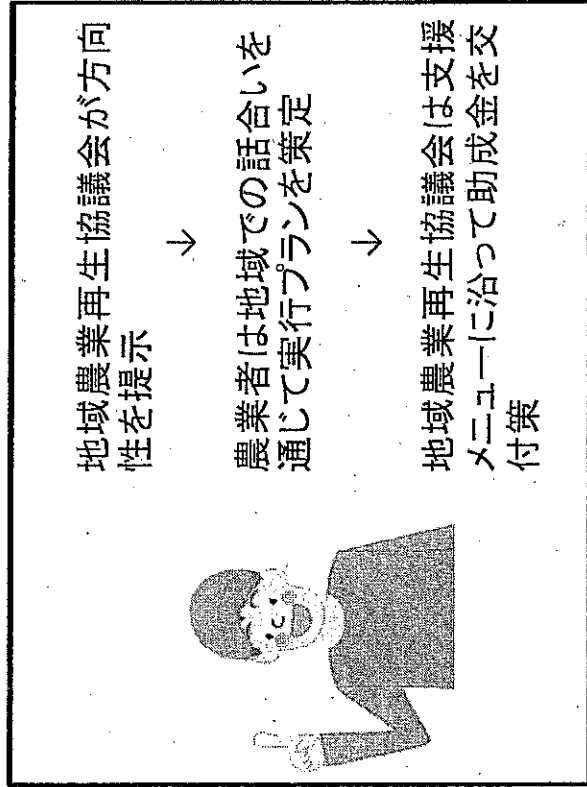 地域農業再生協議会が方向
性を提示
↓
農業者は地域での話合いを
通じて実行プランを策定
↓
地域農業再生協議会は支援
メニューに沿って助成金を交
付策